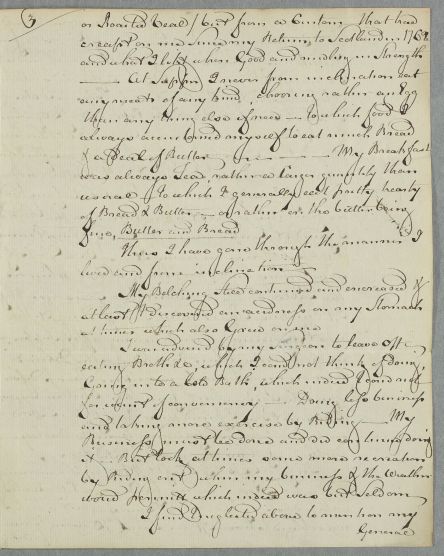 3
or Roasted Veal / but from a Custom that had
crept on me since my Return to Scotland in 1762
and what I left when Good and midling in Strength
—— At Supper I never from inclination eat
any meats of any kind, choosing rather an Egg
than any thing else of meat — to which food I
always accustomed myself to eat much Bread
& a deal of Butter —— My Breakfast
was always Tea, rather a larger quantity than
usual / to which I generally eat pretty hearty
of Bread & Butter — or rather as the butter being
fine, Butter and Bread
Thus I have gone through the manner I
lived and from inclination —
My Belching Still continued and encreased &
at last I discovered an uneasiness on my Stomach
at times which also Grew on me
I was advised by my Surgeon to leave off
eating Broth &c, which I could not think of doing,
Going into a Cold Bath, which indeed I could not
for want of conveniency — Doing less business
and taking more exercise by Riding — My
Business must be done and did continue doing
it — But took at times some more recreation
by Riding out when my business & the Weather
would permitt which indeed was but Seldom
I find I neglected above to mention my
General